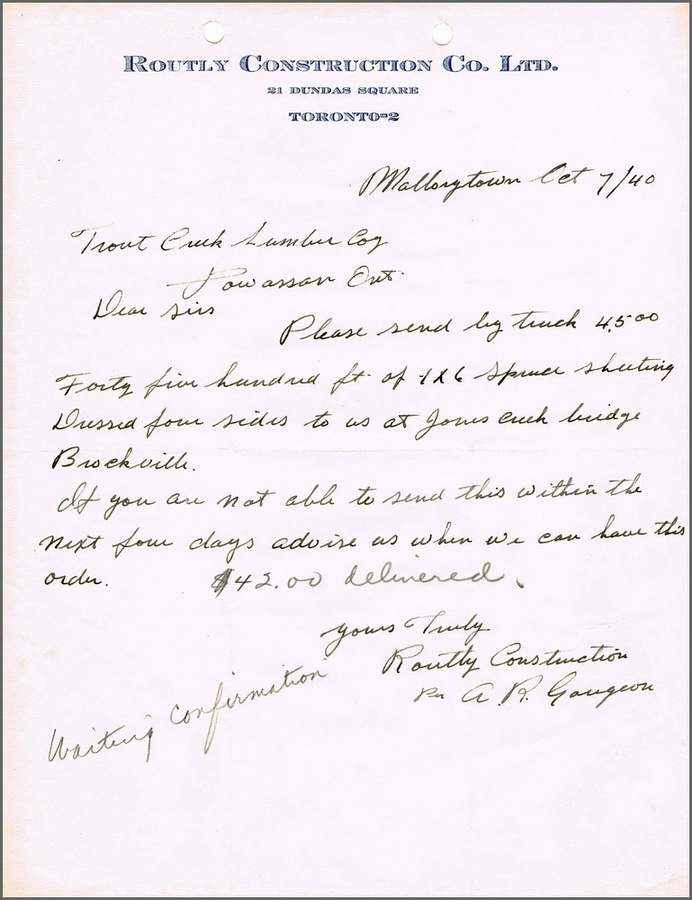 ROUTLY CONSTRUCTION CO. LTD.
21 DUNDAS SQUARE
TORONTO-2
Mallorytown Oct 7/40
Trout Creek Lumber Coy
Powassan Ont.
Dear Sirs
Please send by truck 4500
Forty five hundred ft. of 1X6 Spruce sheeting
Dressed four sides to us at Jones Creek bridge
Brockville.
If you are not able to send this within the
next four days advise us when we can have this
order. $42.00 delivered.
Yours Truly
Routly Construction
Per A. R. Gougeon
Waiting confirmation